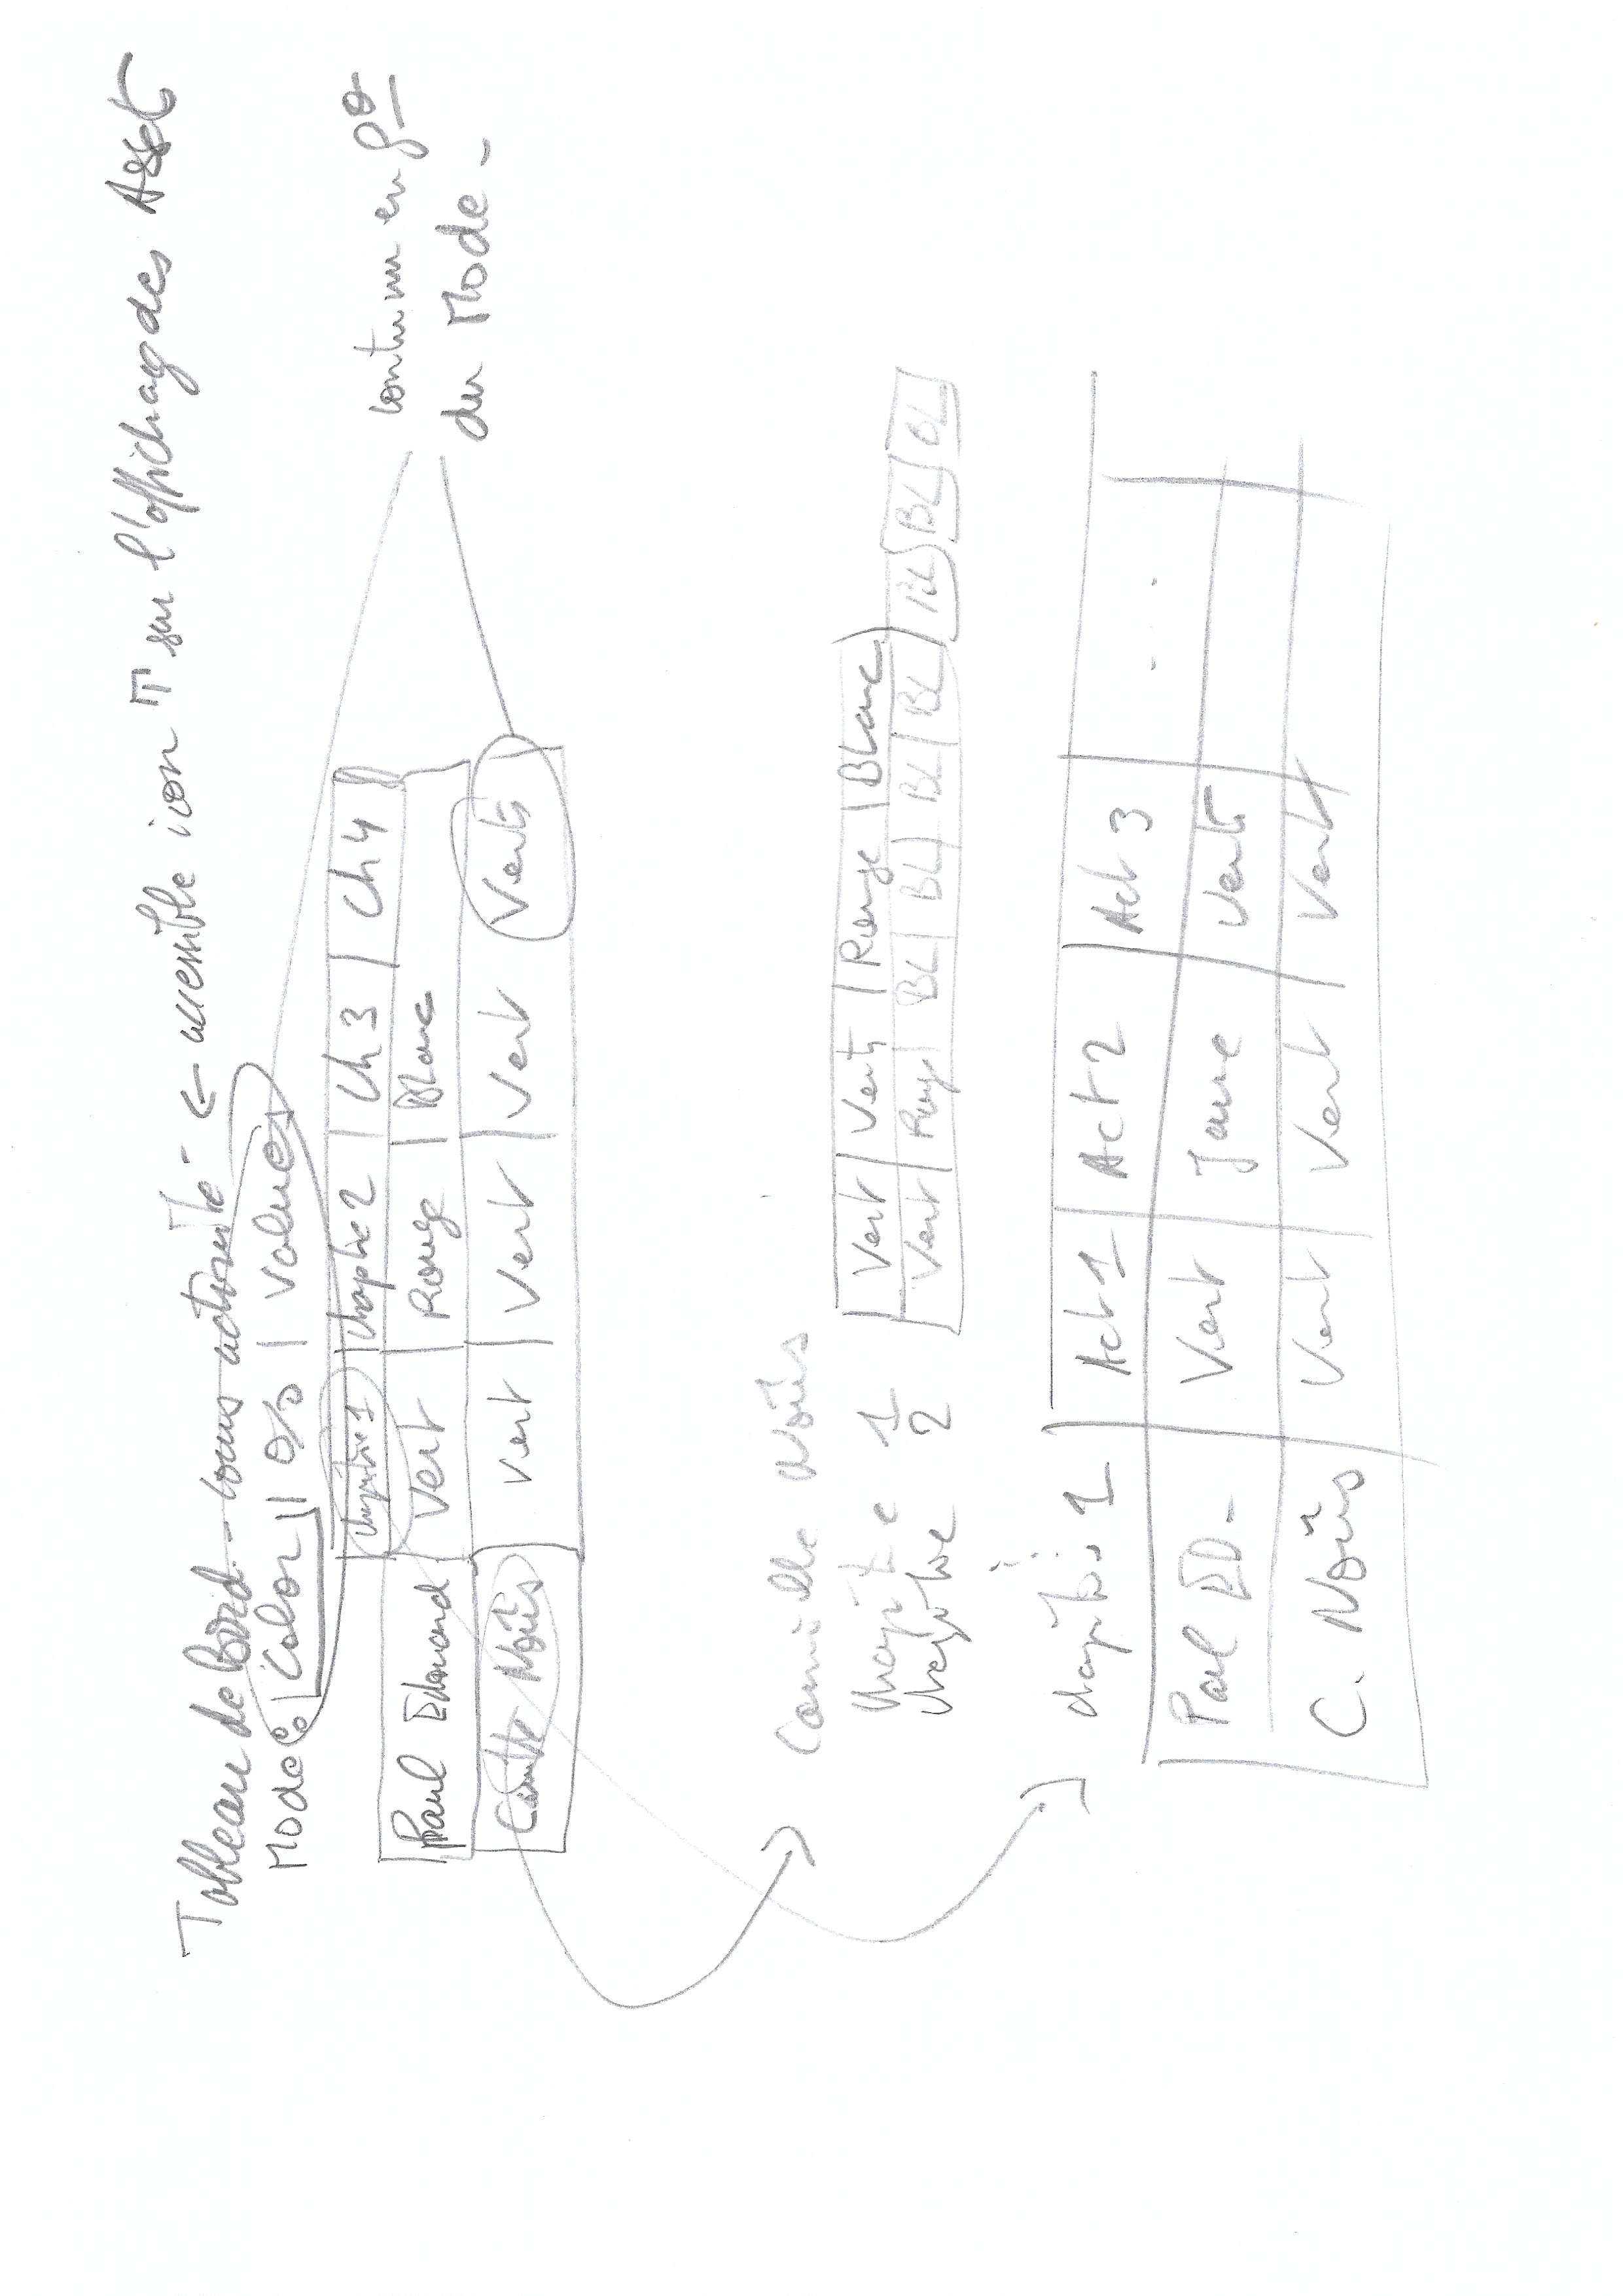 Tableau de bord - tous - ← accessible icon Π sur l'affichage des Asset
Mode : | Color | % | Values
contenu en f°
du Mode -
chapitre 1 | chapitre 2 | Ch 3 | Ch 4
Paul Edouard | Vert | Rouge | Blanc
Camille Noûs | Vert | Vert | Vert | Vert
Camille Noûs
Chapitre 1 | Vert | Vert | Rouge | Blanc
Chapitre 2 | Vert | Rouge | BL | BL | BL | BL | BL | BL | BL
chapitre 1 | Act 1 | Act 2 | Act 3 | ...
Paul ED - | Vert | Jaune | Vert
C. Noûs | Vert | Vert | Vert